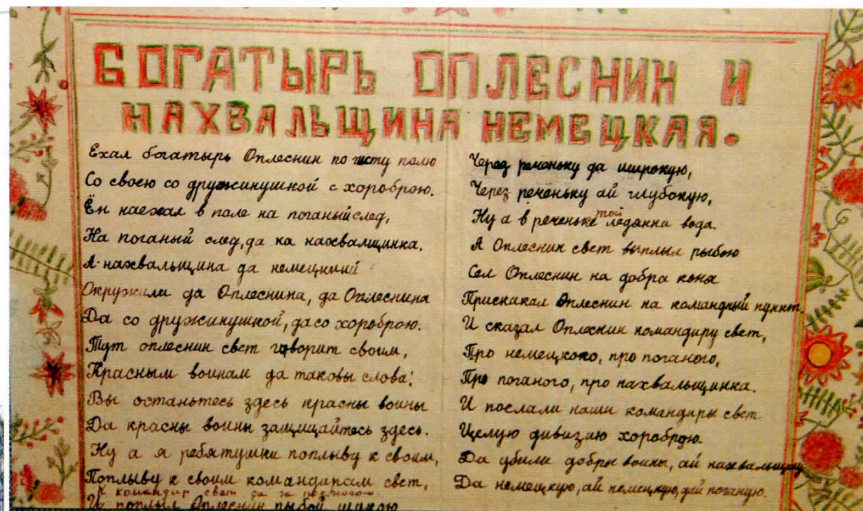 БОГАТЫРЬ ОПЛЕСНИН И
НАХВАЛЬЩИНА НЕМЕЦКАЯ.
Ехал богатырь Оплеснин по чисту полю
Со своею со дружинушкой с хороброю.
Ён наезжал в поле на поганый след,
На поганый след, да на нахвальщинка.
А нахвальщина да немецкий
Окружила да Оплеснина, да Оплеснина
Да со дружинушкой, да со хороброю.
Тут оплеснин свет говорит своим,
Красным воинам да таковы слова:
Вы останьтесь здесь красны воины
Да красны воины защищайтесь здесь.
Ну а я ребятушки поплыву к своим,
Поплыву к своим командирам свет,
И поплыл Оплеснин рыбой щукою
Через реченьку да широкую,
Через реченьку ай глубокую,
Ну а в реченьке той ледянна вода.
А Оплеснин свет выплыл рыбою
Сел Оплеснин на добра коня
Прискакал Оплеснин на командный пункт.
И сказал Оплеснин командиру свет,
Про немецкого, про поганого,
Про поганого, про нахвальщинка.
И послали наши командары свет
Целую дивизию хороброю.
Да убили добры воины, ай нахвальщину
Да немецкую, ай немецкую, ай поганую.